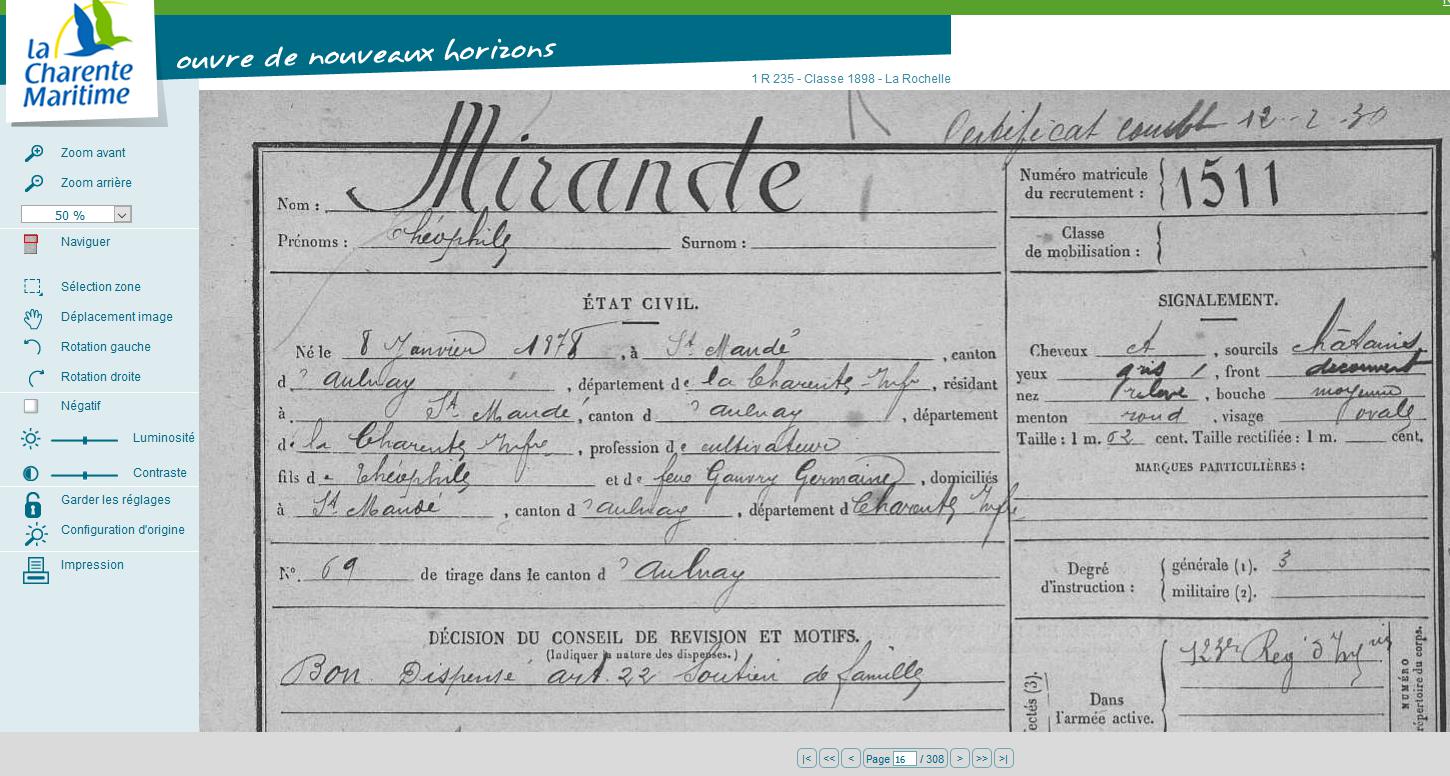 la
Charente
Maritime
ouvre de nouveaux horizons
1 R 235 - Classe 1898 - La Rochelle
Zoom avant
Zoom arrière
50 %
Naviguer
Sélection zone
Déplacement image
Rotation gauche
Rotation droite
Négatif
Luminosité
Contraste
Garder les réglages
Configuration d'origine
Impression
Certificat 12-2-30
Nom : Mirande
Prénoms : Théophile Surnom :
Numéro matricule
du recrutement : 1511
Classe
de mobilisation :
ÉTAT CIVIL.
Né le 8 Janvier 1878, à St Mandé, canton
d'Aulnay, département de la Charente Infre, résidant
à St Mandé, canton d'Aulnay, département
de la Charente Infre, profession de cultivateur
fils de Théophile et de feue Gauvry Germaine, domiciliés
à St Mandé, canton d'Aulnay, département d Charente Infre
N°. 69 de tirage dans le canton d'Aulnay
DÉCISION DU CONSEIL DE REVISION ET MOTIFS.
(Indiquer la nature des dispenses.)
Bon. Dispensé art. 22 Soutien de famille
SIGNALEMENT.
Cheveux et, sourcils châtains
yeux gris, front découvert
nez relevé, bouche moyenne
menton rond, visage ovale
Taille : 1 m. 62 cent. Taille rectifiée : 1 m. cent.
MARQUES PARTICULIÈRES :
Degré
d'instruction :
générale (1). 3
militaire (2).
ectés (3).
Dans
l'armée active.
123e Reg d'Inf
NUMÉRO
répertoire du corps.
|< << < Page 16 / 308 > >> >|